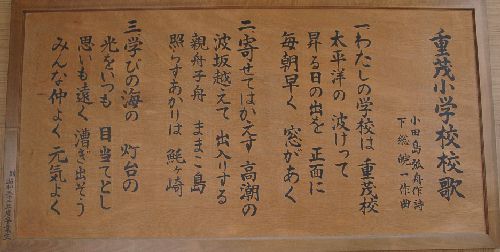 重茂小学校校歌
小田島孤舟作詩
下総皖一作曲
一わたしの学校は 重茂校
太平洋の 波けって
昇る日の出を 正面に
毎朝早く 窓があく
二寄せてはかえす 高潮の
波坂越えて 出入りする
親舟子舟 ままこ島
照らすあかりは 魹ヶ崎
三学びの海の 灯台の
光をいつも 目当てとし
思いも遠く 漕ぎ出そう
みんな仲よく 元気よく